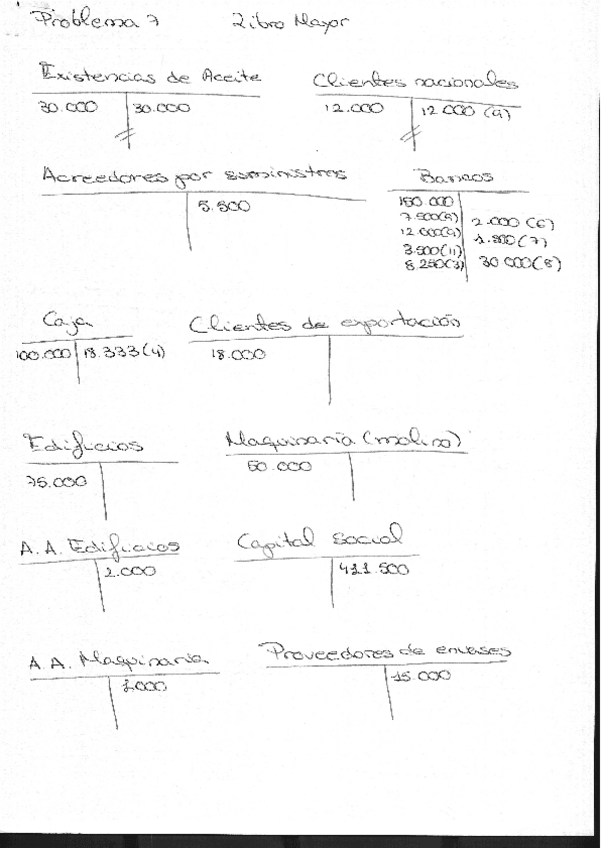 Problema 7 Libro Mayor
Existencias de Aceite Clientes nacionales
30.000 30.000 12.000 12.000 (9)
Acreedores por suministros Bancos
5.500 150.000
7.500(5) 2.000 (6)
12.000(9) 1.800(7)
3.500(11) 30.000(8)
8.250(3)
Caja Clientes de exportación
100.000 18.333(4) 18.000
Edificios Maquinaria (molino)
75.000 50.000
A.A. Edificios Capital Social
2.000 411.500
A.A. Maquinaria Proveedores de envases
1.000 15.000